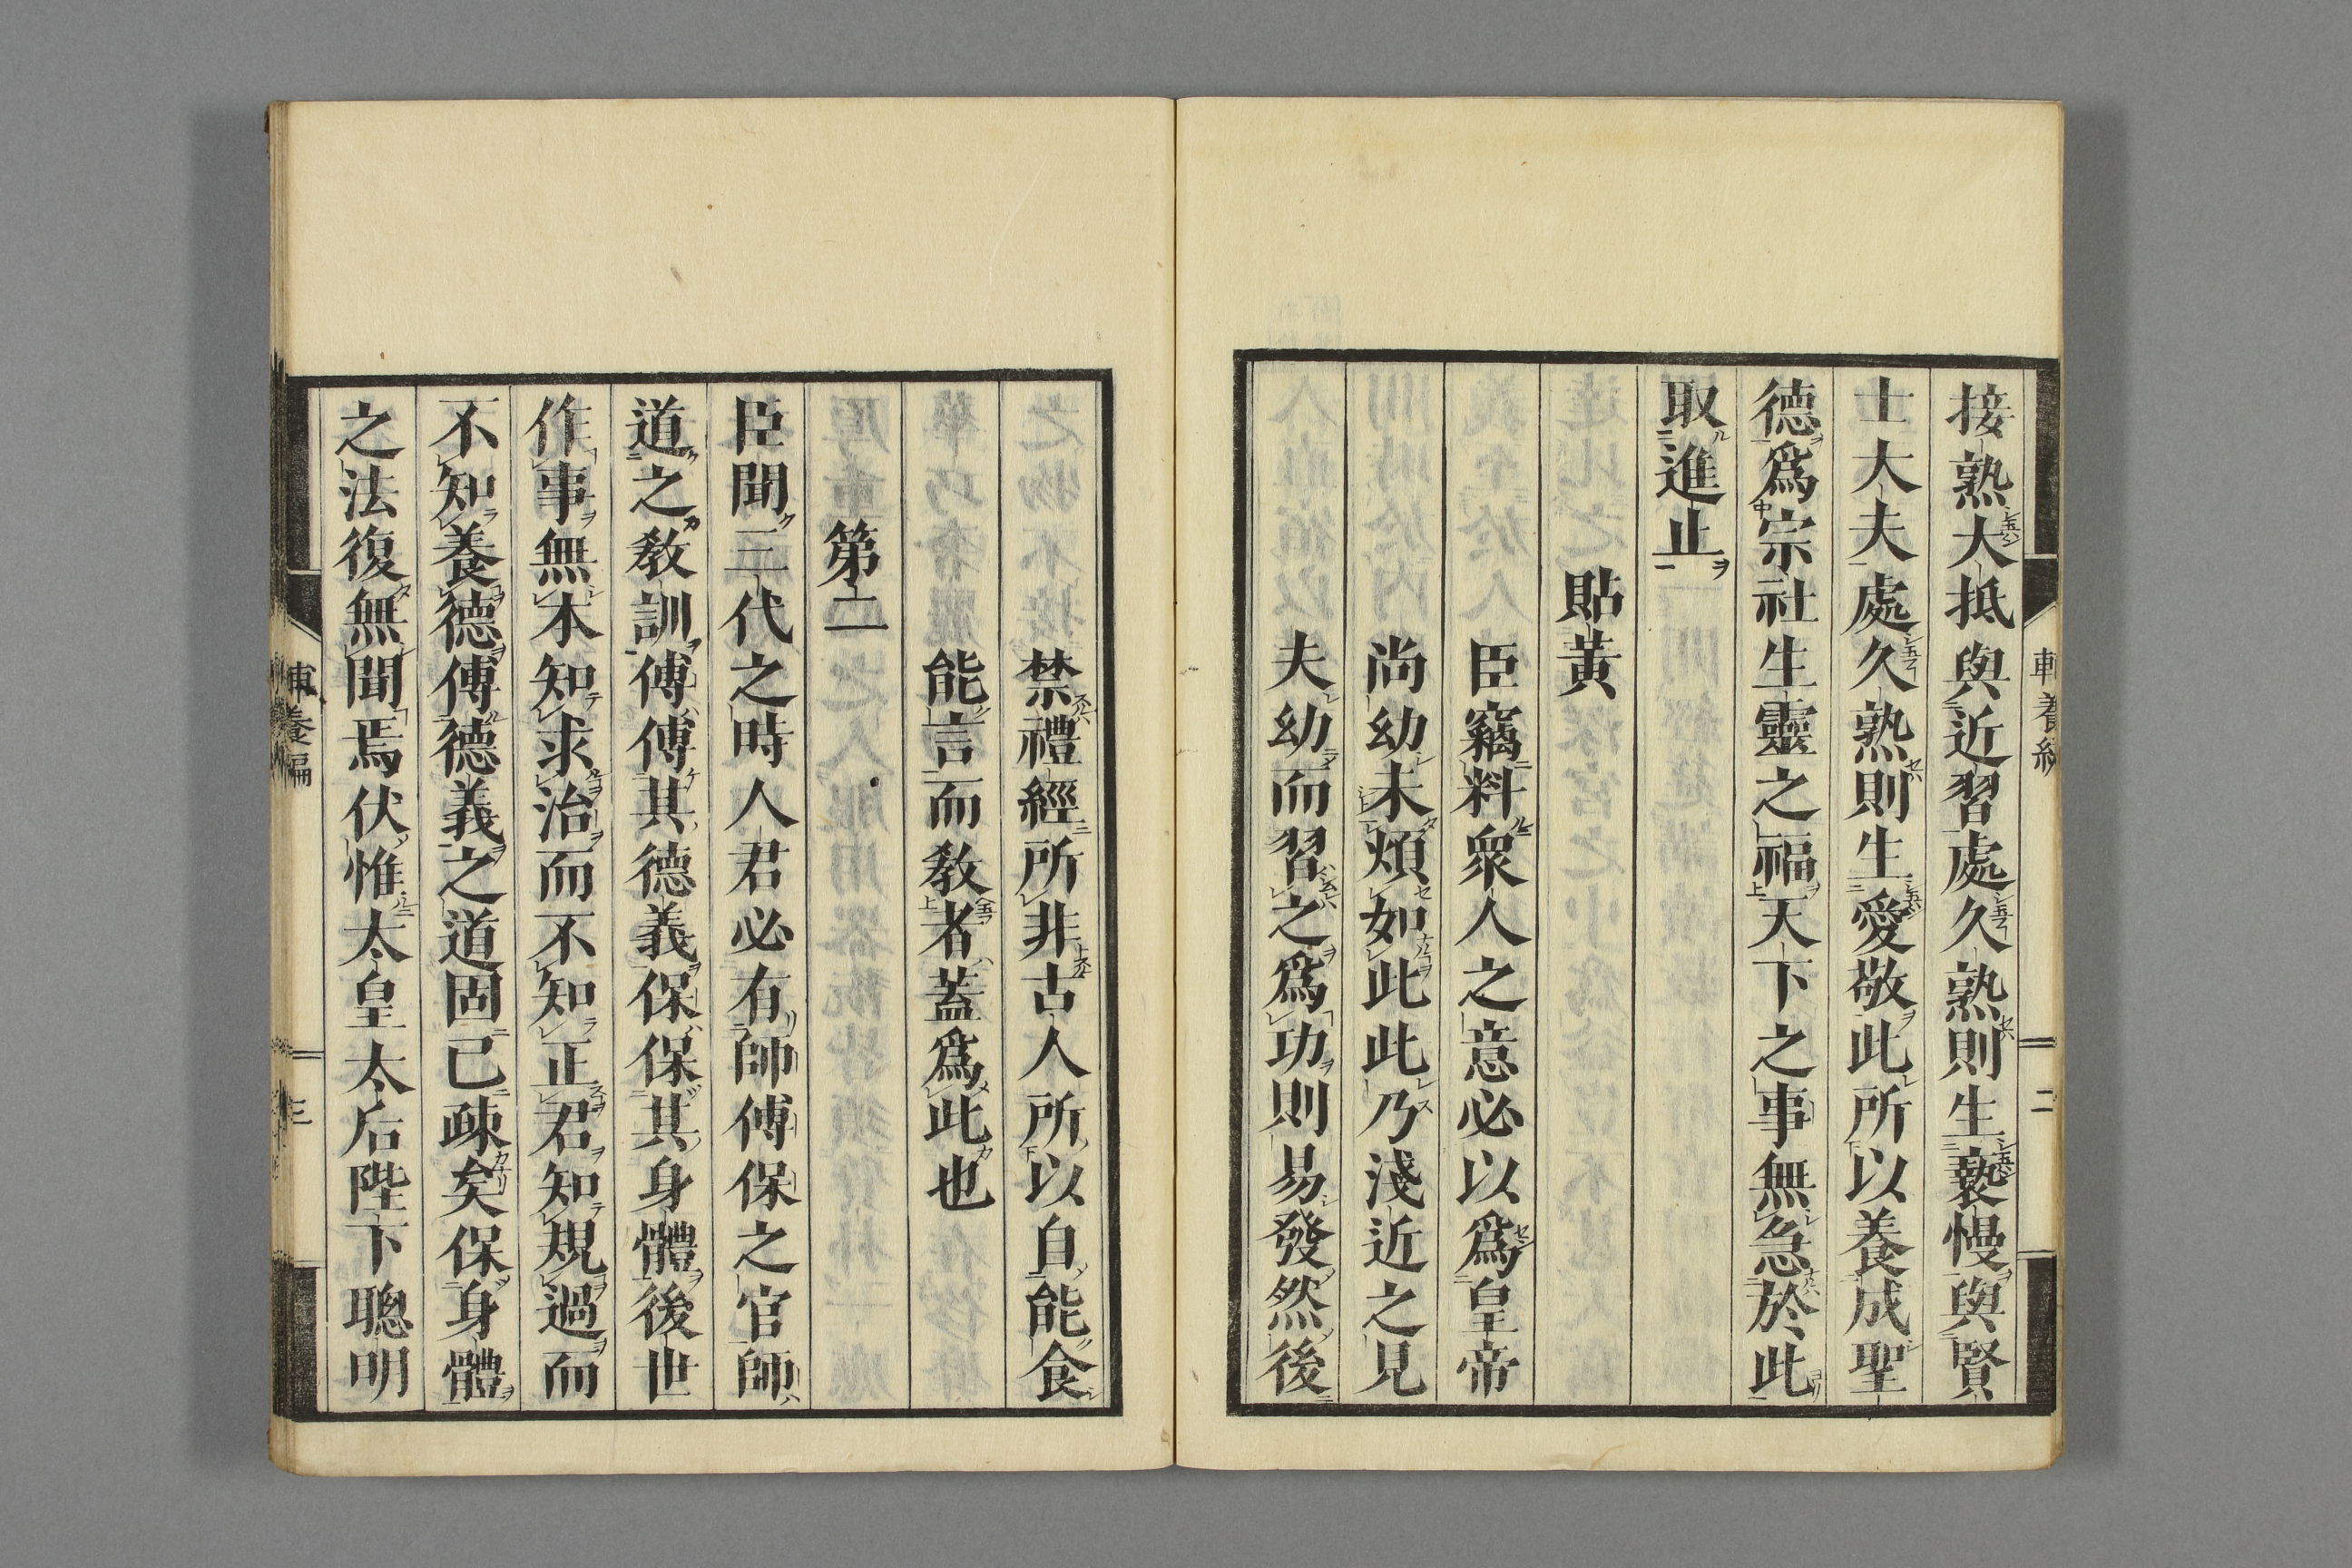 接熟大抵與近習處久熟則生褻慢與賢
士大夫處久熟則生愛敬此所以養成聖
德爲宗社生靈之福天下之事無急於此
取進止
貼黃
臣竊料衆人之意必以爲皇帝
尚幼未煩如此此乃淺近之見
夫幼而習之爲功則易發然後
禁禮經所非古人所以自能食
能言而敎者蓋爲此也
第二
臣聞三代之時人君必有師傅保之官師
道之敎訓傅傅其德義保保其身體後世
作事無本知求治而不知正君知規過而
不知養德傅德義之道固已疎矣保身體
之法復無聞焉伏惟太皇太后陛下聰明
二
三